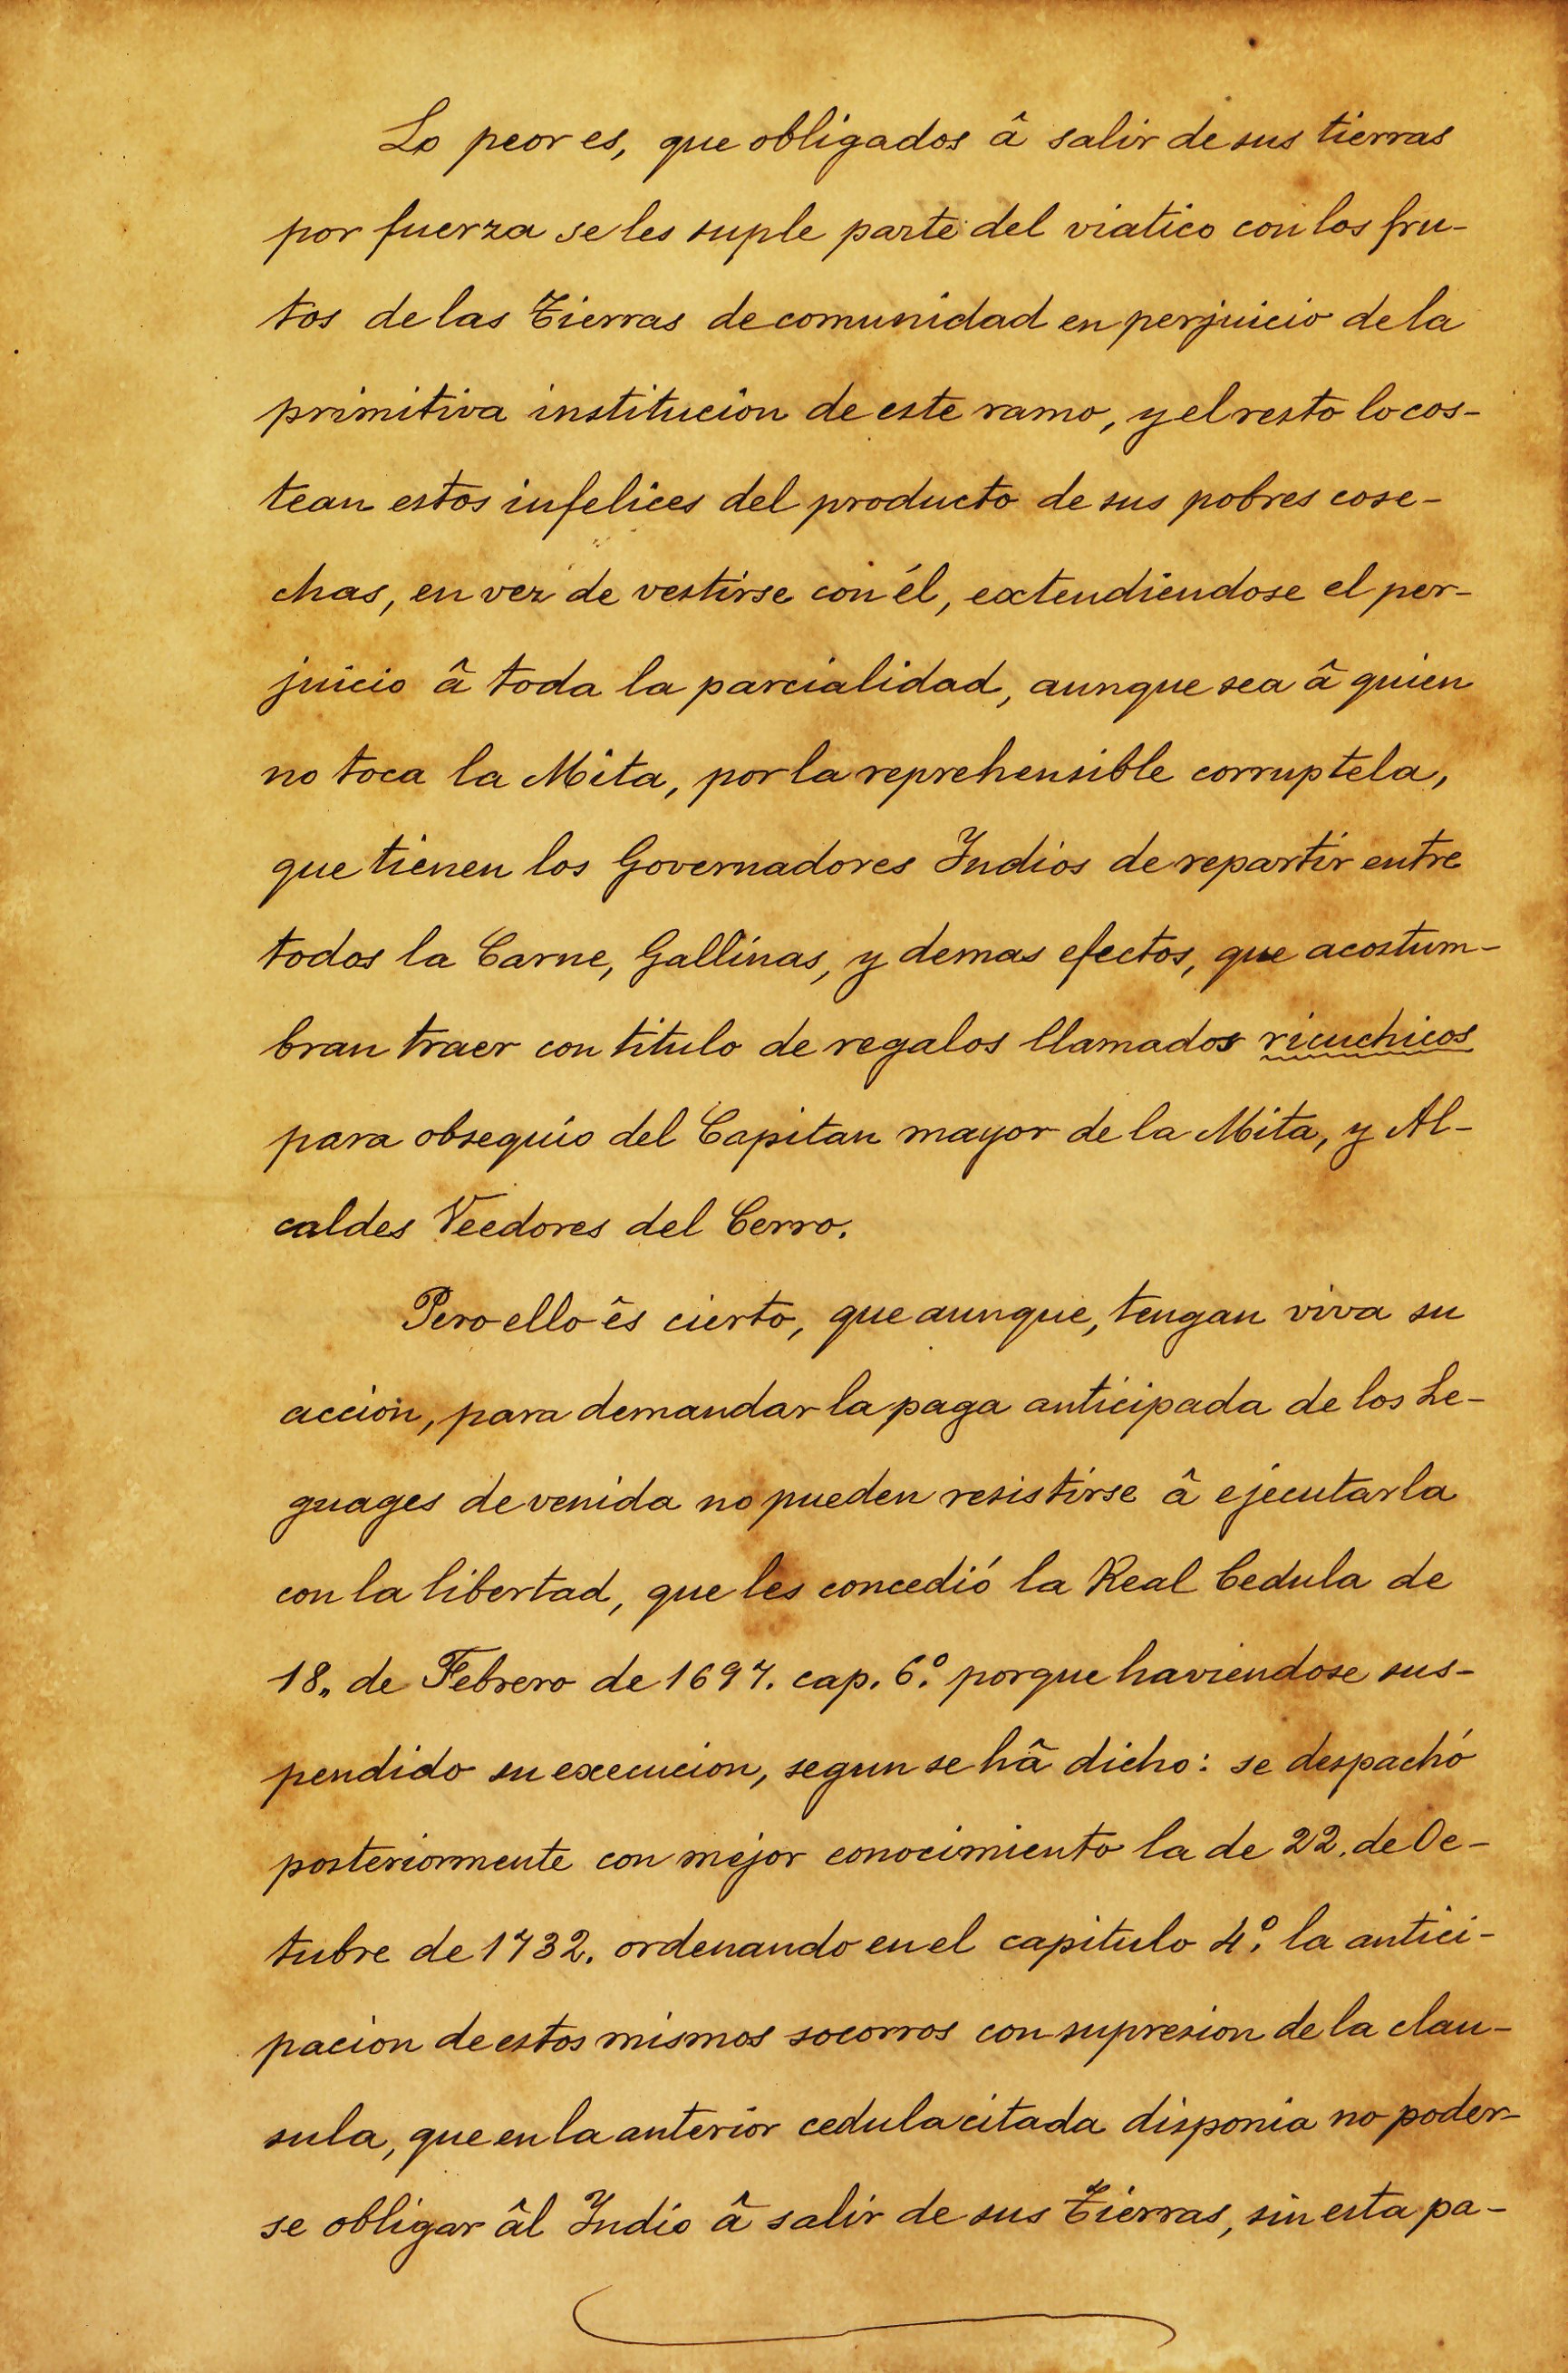 Lo peor es, que obligados â salir de sus tierras
por fuerza se les suple parte del viatico con los fru-
tos de las Tierras de comunidad en perjuicio de la
primitiva institucion de este ramo, y el resto lo cos-
tean estos infelices del producto de sus pobres cose-
chas, en vez de vestirse con él, extendiendose el per-
juicio â toda la parcialidad, aunque sea â quien
no toca la Mita, por la reprehensible corruptela,
que tienen los Governadores Indios de repartir entre
todos la Carne, Gallinas, y demas efectos, que acostum-
bran traer con titulo de regalos llamados ricuchicos
para obsequio del Capitan mayor de la Mita, y Al-
caldes Veedores del Cerro.
Pero ello ês cierto, que aunque, tengan viva su
accion, para demandar la paga anticipada de los Le-
guages de venida no pueden resistirse â ejecutarla
con la libertad, que les concedió la Real Cedula de
18. de Febrero de 1697. cap. 6.º porque haviendose sus-
pendido su execucion, segun se hâ dicho: se despachó
posteriormente con mejor conocimiento la de 22. de Oc-
tubre de 1732. ordenando en el capitulo 4.º la antici-
pacion de estos mismos socorros con supresion de la clau-
sula, que en la anterior cedula citada disponia no poder-
se obligar âl Indio â salir de sus Tierras, sin esta pa-